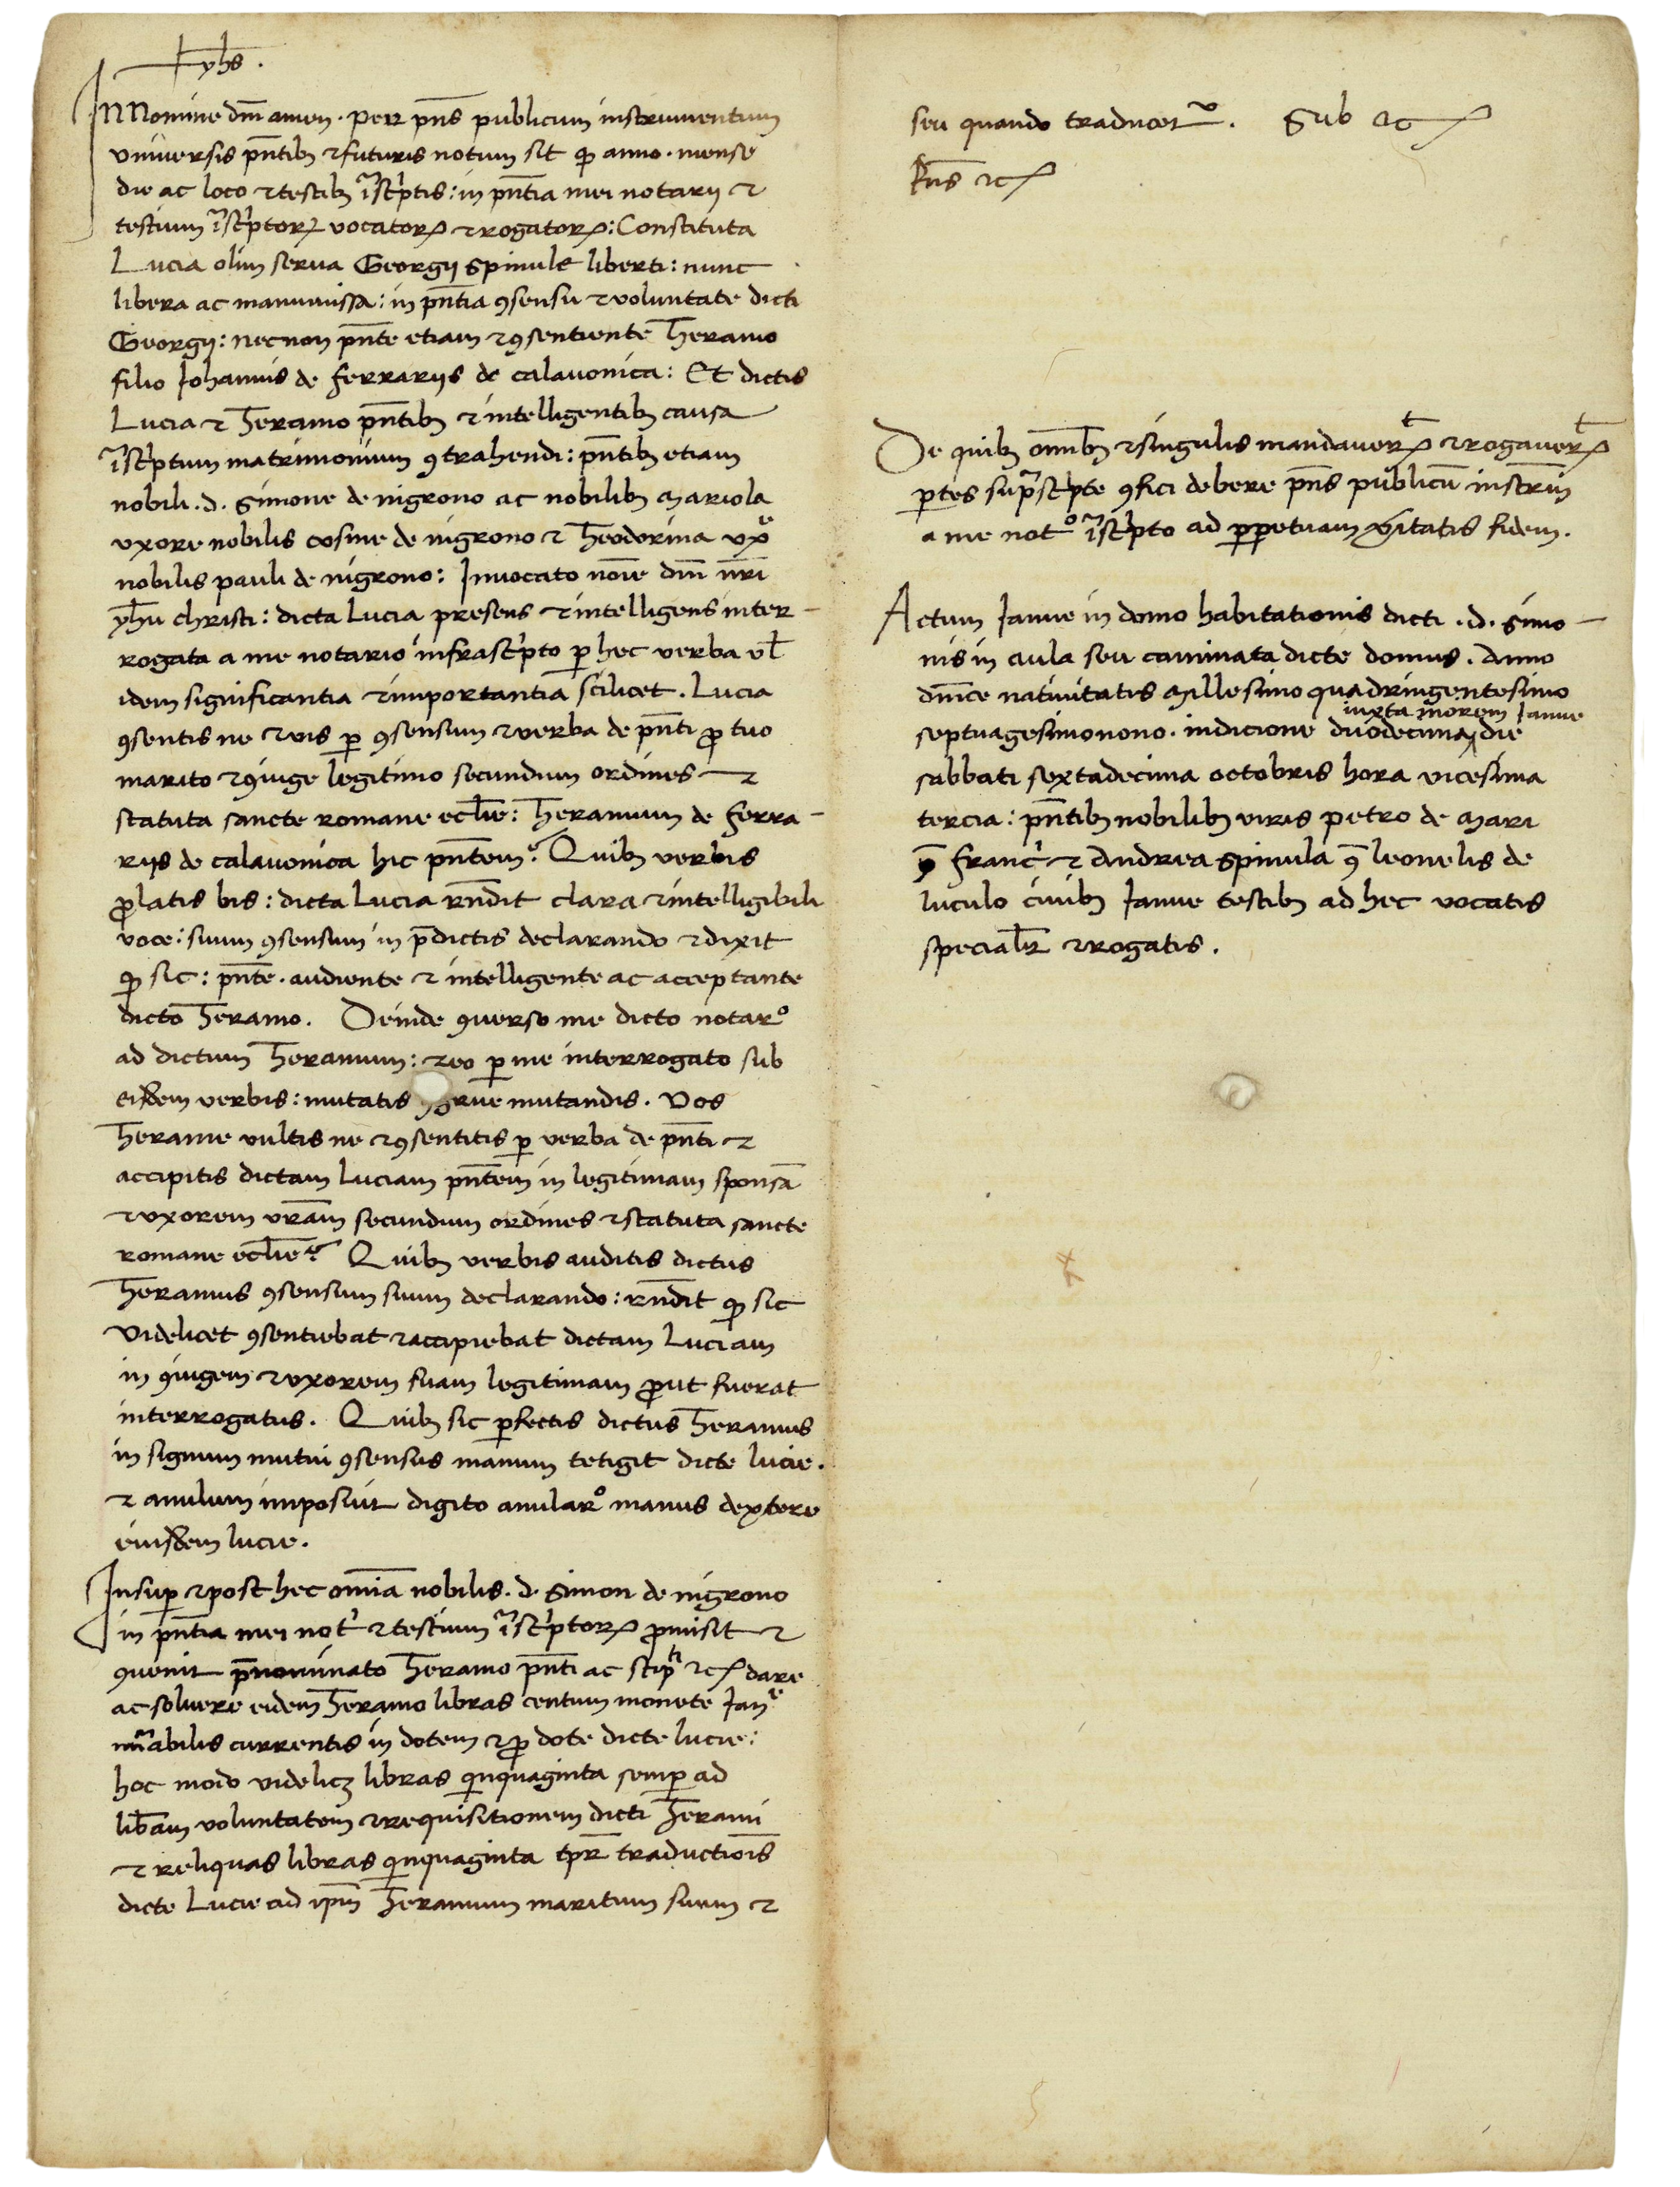 yhs.
IN Nomine dñi amen. Per pñs publicum instrumentum
universis pñtibȝ ⁊ futuris notum sit ꝙ anno. mense
die ac loco ⁊ testibȝ ĩscͥptis: in pñtia mei notarij ⁊
testium ĩscͥptoꝝ vocatoꝝ ⁊ rogatoꝝ: Constituta
Lucia olim serva Georgij spinule liberti: nunc
libera ac manumissa: in pñtia ꝯsensu ⁊ voluntate dicti
Georgij: necnon pñte etiam ⁊ ꝯsentiente Theramo
filio Johannis de ferrariis de calavonica: Et dictis
Lucia ⁊ Theramo pñtibȝ ⁊ intelligentibȝ causa
ĩscͥptum matrimonium ꝯtrahendi: pñtibȝ etiam
nobili .d. Simone de nigrono ac nobilibȝ Mariola
uxore nobilis cosme de nigrono ⁊ Theodorina uxͤ
nobilis pauli de nigrono: Invocato noĩe dñi nr̃i
yhu christi: dicta Lucia presens ⁊ intelligens inter-
rogata a me notario infrascͥpto ꝑ hec verba vł
idem significantia ⁊ importantia scilicet. Lucia
ꝯsentis ne ⁊ vis ꝑ ꝯsensum ⁊ verba de pñti ꝓ tuo
marito ⁊ ꝯiuge legitimo secundum ordines ⁊
statuta sancte romane ecclie: Theramum de ferra-
riis de calavonica hic pñtem? Quibȝ verbis
ꝓlatis bis: dicta Lucia rñdit clara ⁊ intelligibili
voce: suum ꝯsensum in p̄dictis declarando ⁊ dixit
ꝙ sic: pñte. audiente ⁊ intelligente ac acceptante
dicto Theramo. Deinde ꝯverso me dicto notarº
ad dictum Theramum: ⁊ eo ꝑ me interrogato sub
eisdem verbis: mutatis ꝯgrue mutandis. Vos
Therame vultis ne ⁊ ꝯsentitis ꝑ verba de pñti ⁊
accipitis dictam Luciam pñtem in legitimam sponsã
⁊ uxorem vr̃am secundum ordines ⁊ statuta sancte
romane ecclie? Quibȝ verbis auditis dictus
Theramus ꝯsensum suum declarando: rñdit ꝙ sic
Videlicet ꝯsentiebat ⁊ accipiebat dictam Luciam
in ꝯiugem ⁊ uxorem suam legitimam ꝓut fuerat
interrogatus. Quibȝ sic ꝑfectis dictus Theramus
in signum mutui ꝯsensus manum tetigit dicte lucie.
⁊ anulum imposuit digito anularº manus dextere
eiusdem lucie.
Insuꝑ ⁊ post hec omĩa nobilis .d. Simon de nigrono
in pñtia mei notͥ ⁊ testium ĩscͥptoꝝ ꝓmisit ⁊
ꝯvenit p̄nominato Theramo pñti ac stipti ⁊c dare
ac solvere eidem Theramo libras centum monete Janͤ
nũabilis currentis in dotem ⁊ ꝓ dote dicte lucie:
hoc modo videlicȝ libras qͥnquaginta semꝑ ad
lib̃am voluntatem ⁊ requisitionem dicti Therami
⁊ reliquas libras qͥnquaginta tpr̃ traductiõis
dicte Lucie ad ipm̃ Theramum maritum suum ⁊
seu quando traducetᷣ. Sub ⁊c
Rñs ⁊c
De quibȝ omĩbȝ ⁊ singulis mandaveꝝt ⁊ rogaveꝝt
ꝑtes supͣscͥpte ꝯfici debere pñs publicũ instrm̃
a me notº ĩscͥpto ad ꝑpetuam ṽitatis fidem.
Actum Janue in domo habitationis dicti .d. Simo-
nis in aula seu caminata dicte domus. Anno
dñice nativitatis Millesimo quadringentesimo
iuxta morem Janue
septuagesimonono. indicione duodecima die
sabbati sextadecima octobris hora vicesima
tercia: pñtibȝ nobilibȝ viris petro de Mari
ꝙ̃ francͥ ⁊ Andrea spinula ꝙ̃ leonelis de
luculo civibȝ Janue testibȝ ad hec vocatis
specialr̃ ⁊ rogatis.